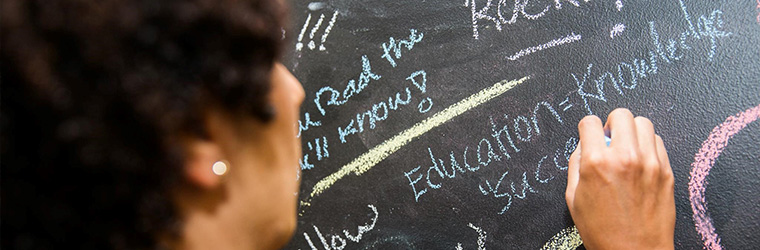 !!!
Rock!
Read the
'll know!
Education = Knowledge
"Succe
low